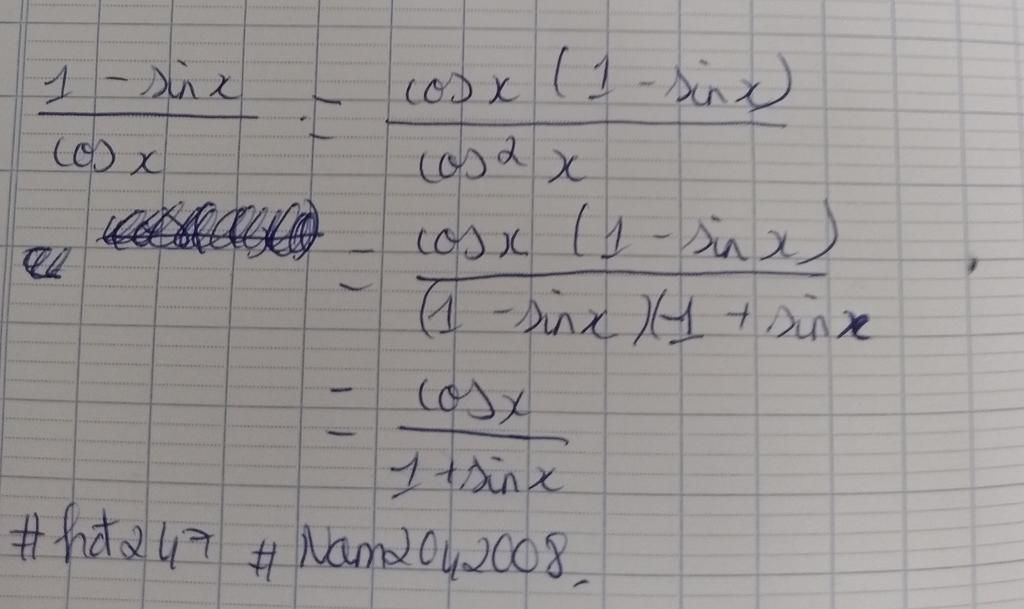 1 - sin x / cos x = cos x (1 - sin x) / cos² x
= cos x (1 - sin x) / (1 - sin x)(1 + sin x
= cos x / 1 + sin x
#hdt247 #Nam2042008.